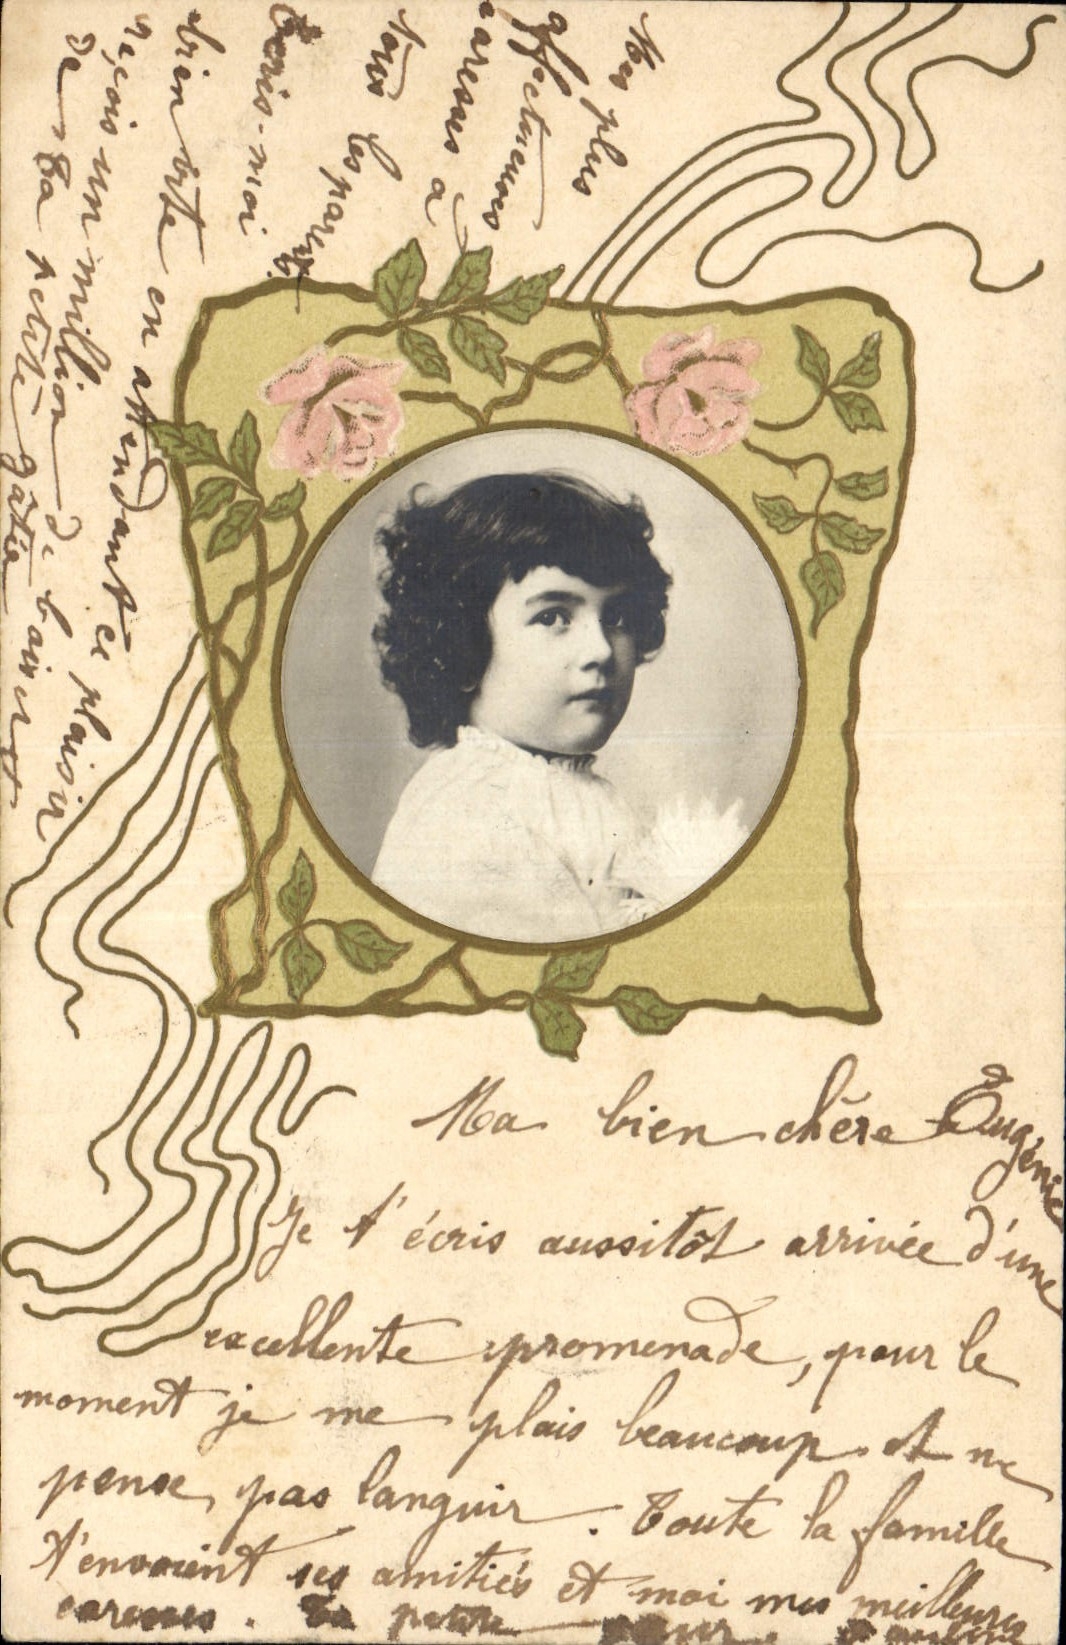 Ma bien chère Eugénie
Je t'écris aussitôt arrivée d'une
excellente promenade, pour le
moment je me plais beaucoup et ne
pense pas languir. Toute la famille
t'envoient ses amitiés et moi mes meilleures
caresses. Ta petite
Mes plus
affectueuses
caresses à
tous les parents
Ecris-moi
bien vite en attendant ce plaisir
reçois un million de baisers
de ta petite gâtée